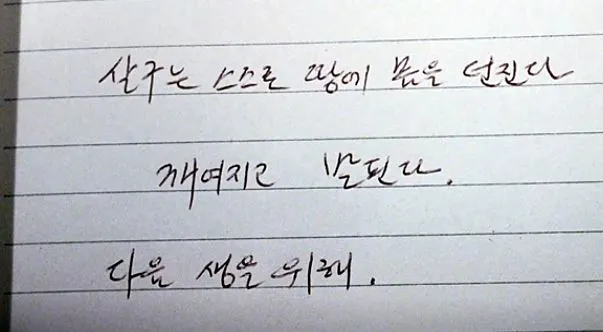 살구는 스스로 땅에 몸을 던진다
깨여지고 밟힌다.
다음 생을 위해.